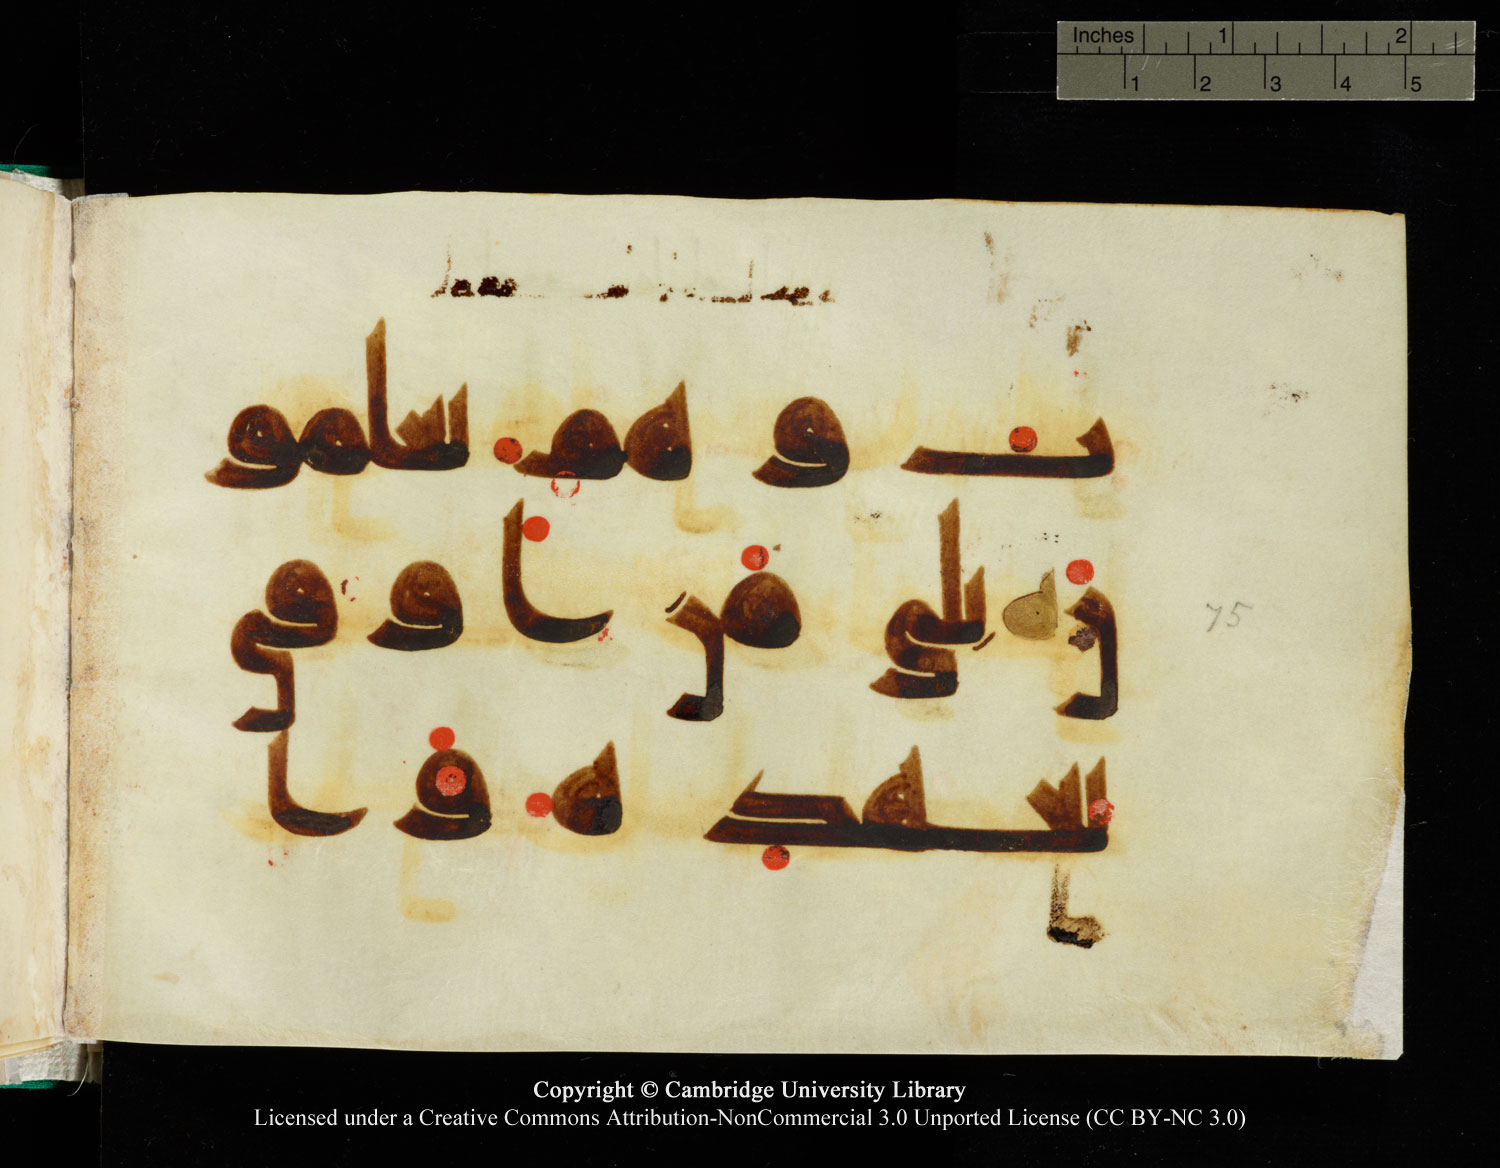 Inches 1 2
1 2 3 4 5
ب و هم يعلمو
ن بلى من ا و فى
بعهد ه و ا
75
Copyright © Cambridge University Library
Licensed under a Creative Commons Attribution-NonCommercial 3.0 Unported License (CC BY-NC 3.0)